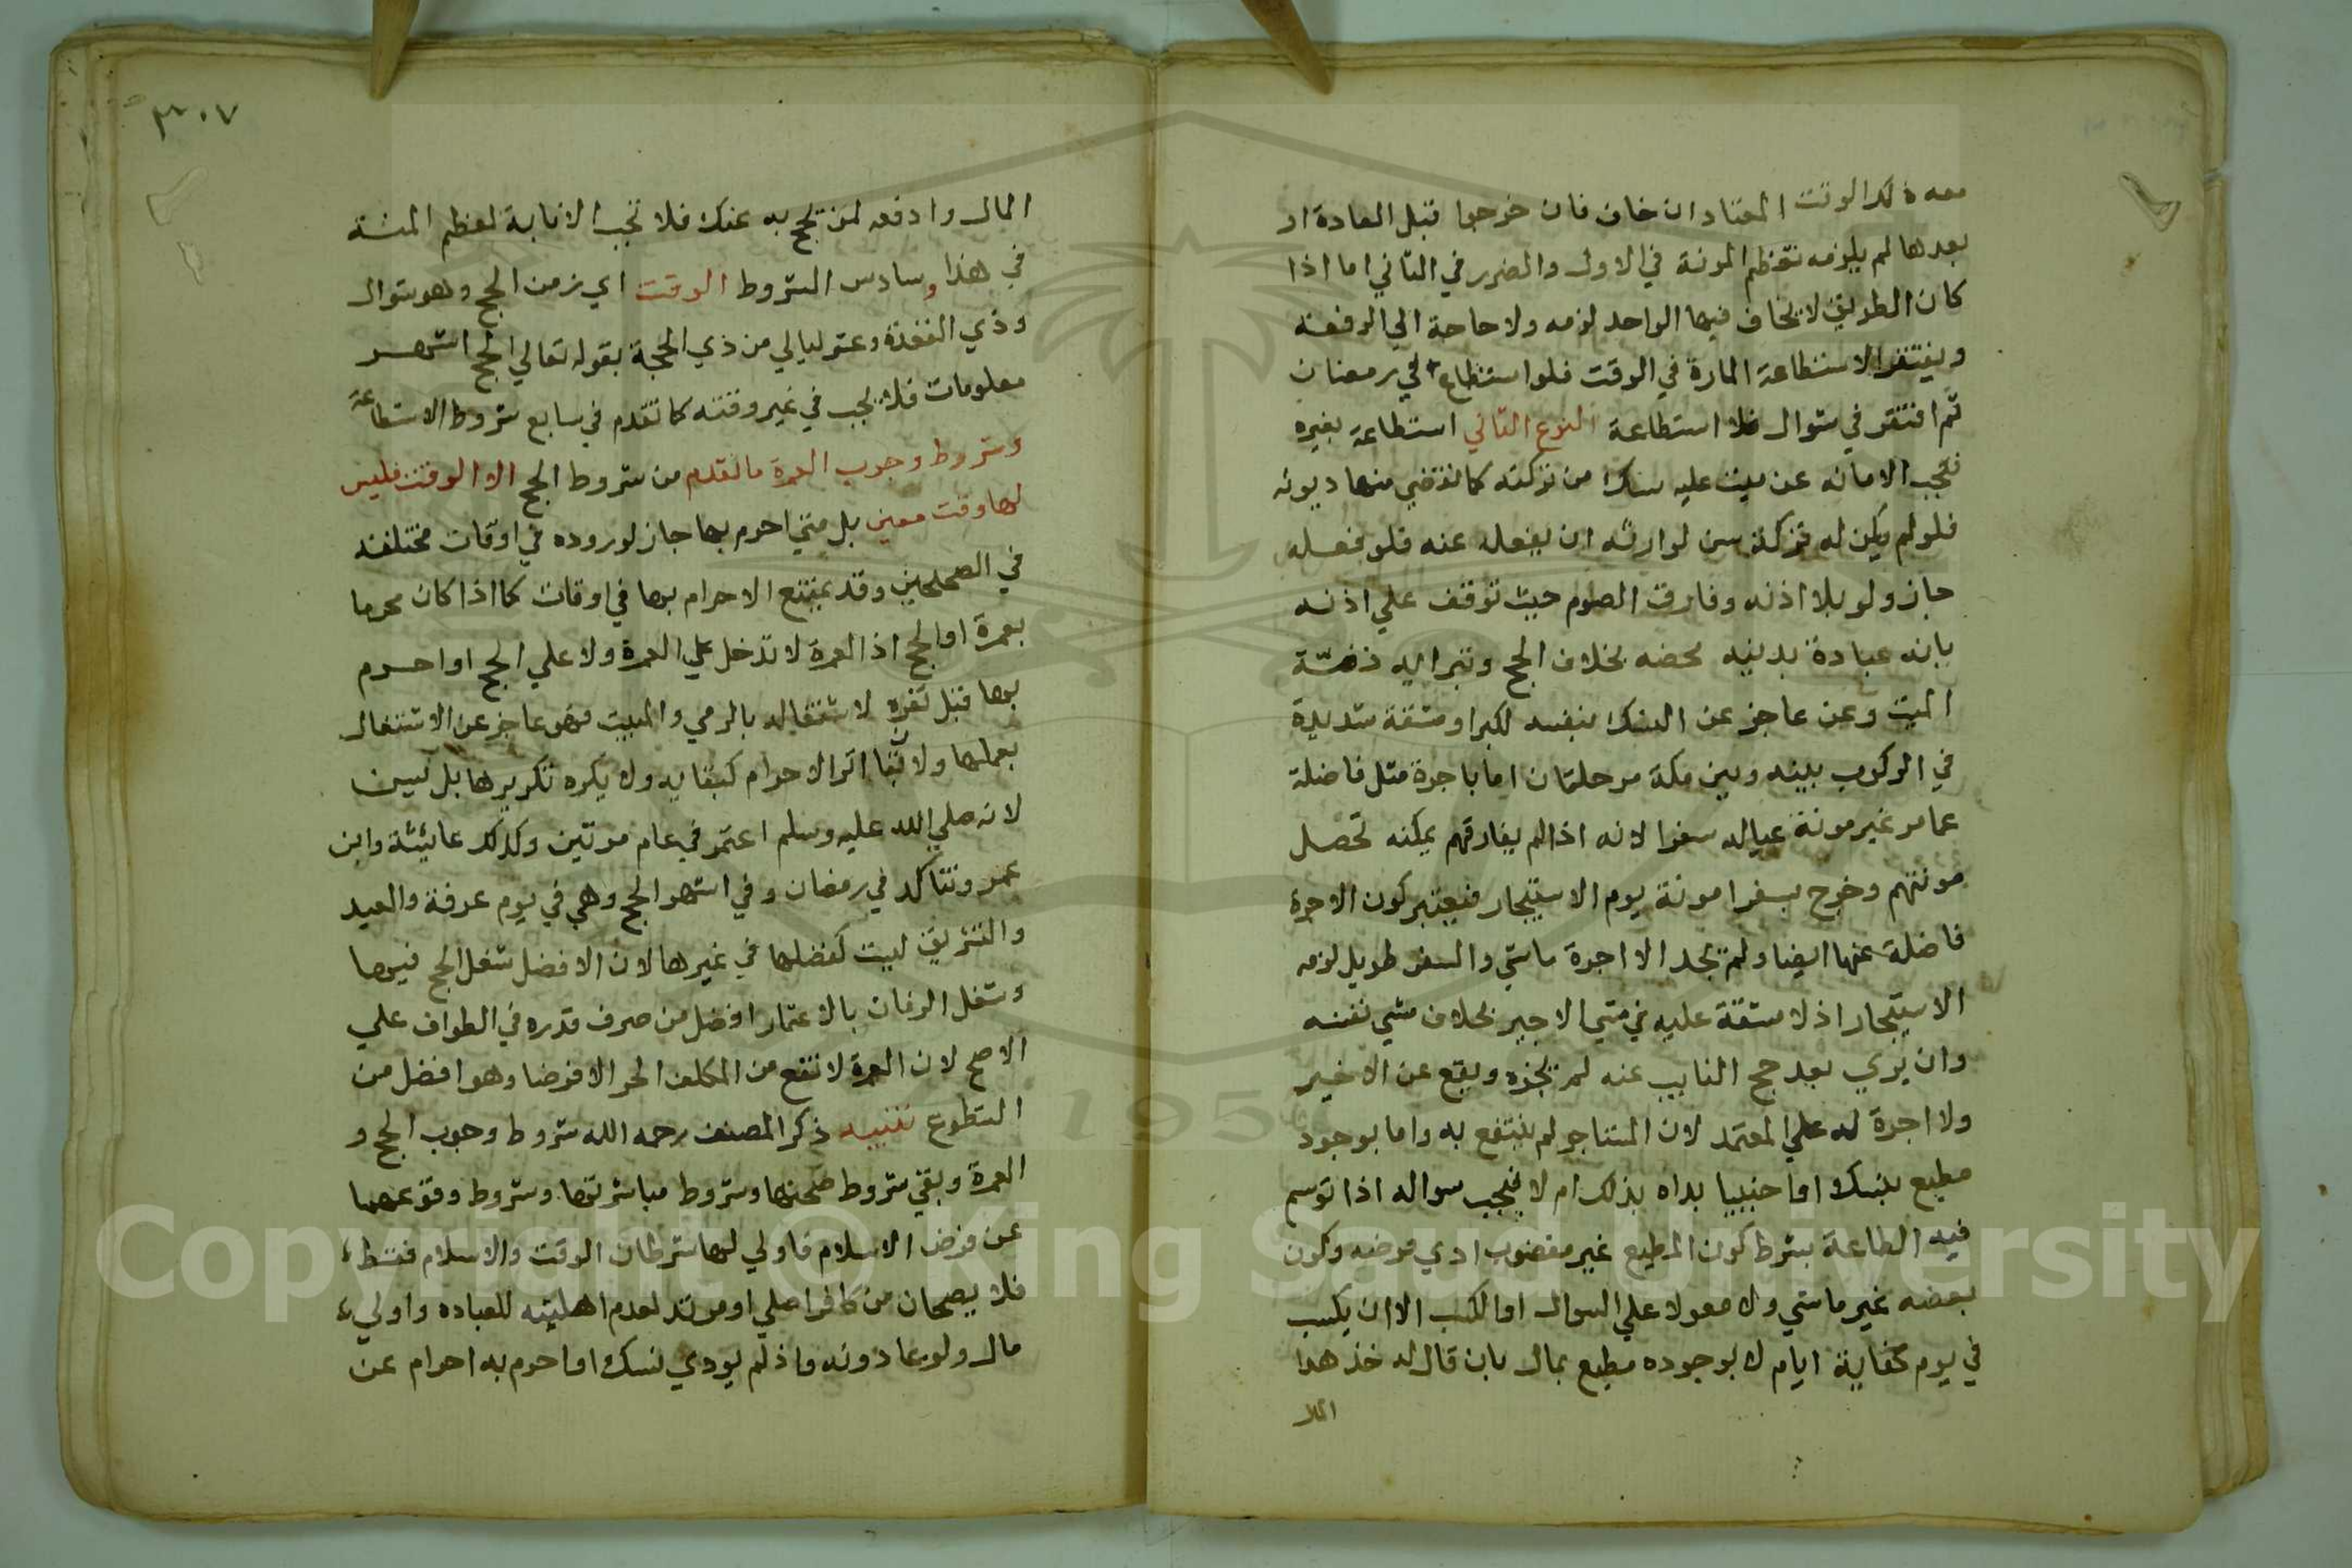 معه ذلك الوقت المعتاد ان خاف فان خرجوا قبل العادة او
بعدها لم يلزمه لتعظم المونة في الاول والضرر في الثاني اما اذا
كان الطريق لا يخاف فيها الواحد لزمه ولا حاجة الي الرفقة
ويفتقر الاستطاعة المارة في الوقت فلو استطاع في رمضان
ثم افتقر في شوال فلا استطاعة النوع الثاني استطاعة بغيره
فتجب الانابه عن ميت عليه نسك من تركته كما تقضي منها ديونه
فلو لم يكن له تركة سن لوارثه ان يفعله عنه فلو فعله
جاز ولو بلا اذنه وفارق الصوم حيث توقف علي اذنه
بانه عبادة بدنيه محضه بخلاف الحج وتبرا به ذمّة
الميت وعن عاجز عن النسك بنفسه لكبر او مشقة شديدة
في الركوب بينه وبين مكة مرحلتان اما باجرة مثل فاضلة
عما مر غير مونة عياله سفرا لانه اذا لم يفارقهم يمكنه تحصل
مونتهم وخرج بسفرا مونة يوم الاستيجار فيعتبر كون الاجرة
فاضلة عنها ايضا ولم يجد الا اجرة ماشي والسفر طويل لزمه
الاستيجار اذ لا مشقة عليه في مشي الاجير بخلاف مشي نفسه
وان بري بعد حج النايب عنه لم يجزه ويقع عن الاخير
ولا اجرة له علي المعتمد لان المستاجر لم ينتفع به واما بوجود
مطيع بنسك اما جنبيا بداه بذلك ام لا فيجب سواله اذا توسم
فيه الطاعة بشرط كون المطيع غير معضوب ادي فرضه وكون
بعضه غير ماشي ولا معولا علي السوال او الكسب الا ان يكسب
في يوم كفاية ايام لا بوجوده مطيع بمال بان قال له خذ هدا
المال
٣٠٧
المال وادفعه لمن يحج به عنك فلا تجب الانابة لعظم المنة
في هذا وسادس الشروط الوقت اي زمن الحج وهو شوال
وذي القعدة وعشر ليالي من ذي الحجة بقوله تعالي الحج اشهر
معلومات فلا يجب في غير وقته كما تقدم في سابع شروط الاستطاعة
وشروط وجوب العمرة ما تقدم من شروط الحج الا الوقت فليس
لها وقت معين بل متي احرم بها جاز لوروده في اوقات مختلفة
في الصحيحين وقد يمتنع الاحرام بها في اوقات كما اذا كان محرما
بعمرة او الحج اذ العمرة لا تدخل علي العمرة ولا علي الحج او احرم
بها قبل نفره لاشتغاله بالرمي والمبيت فهو عاجز عن الاشتغال
بعملها ولان بقا اثر الاحرام كبقايه ولا يكره تكريرها بل يسن
لانه صلي الله عليه وسلم اعتمر في عام مرتين وكذلك عائيشة وابن
عمر وتتاكد في رمضان وفي اشهر الحج وهي في يوم عرفة والعيد
والتشريق ليست كفضلها في غيرها لان الافضل شغل الحج فيها
وشغل الزمان بالاعتمار افضل من صرف قدره في الطواف علي
الاصح لان العمرة لا تقع من المكلف الحر الا فرضا وهو افضل من
التطوع تنبيه ذكر المصنف رحمه الله شروط وجوب الحج و
العمرة وبقي شروط صحتها وشروط مباشرتها وشروط وقوعهما
عن فرض الاسلام فاولي لها شرطان الوقت والاسلام فقط
فلا يصحان من كافر اصلي او مرتد لعدم اهليته للعباده واولي
مال ولو بما دونه واذ لم يودي نسك او احرم به احرام عن